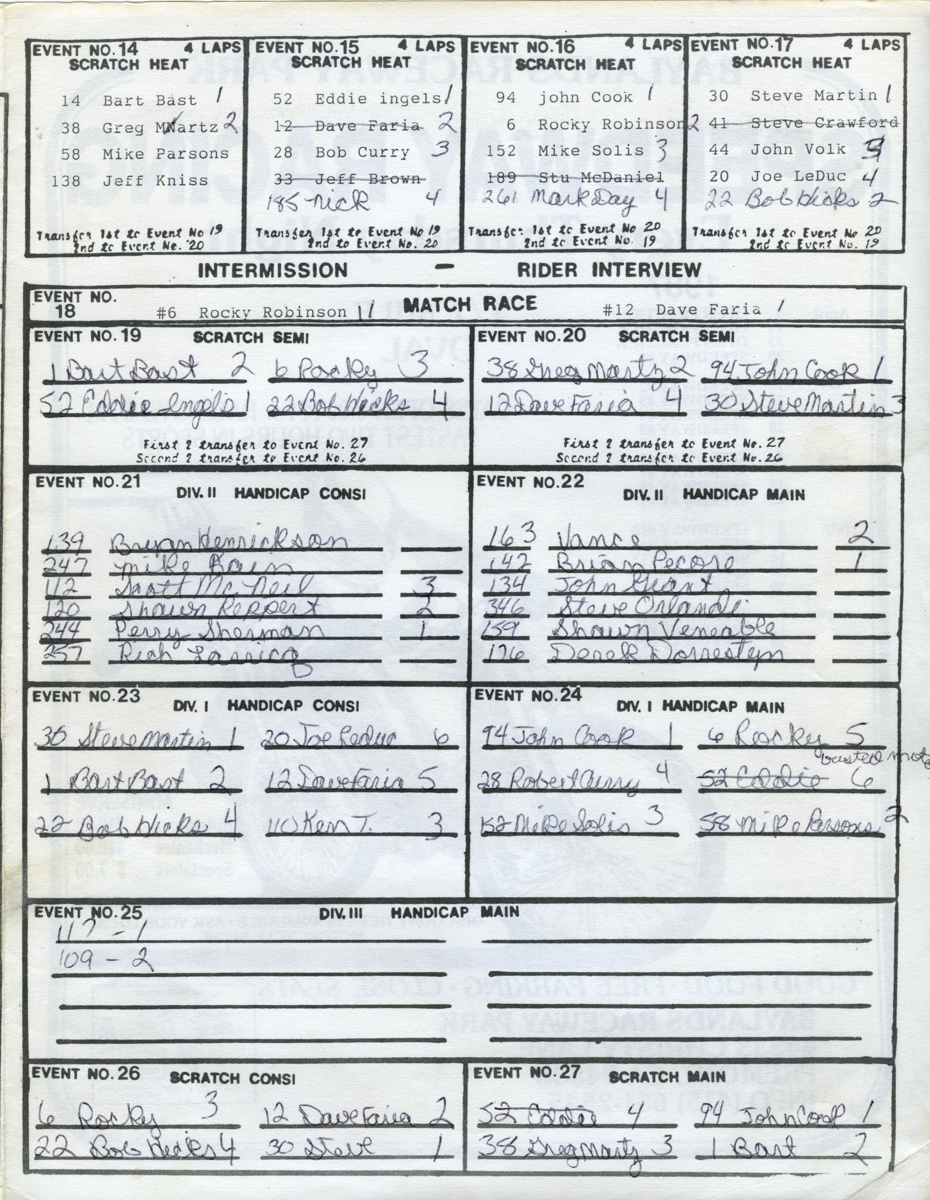 EVENT NO.14 4 LAPS
SCRATCH HEAT
14 Bart Bast 1
38 Greg Martz 2
58 Mike Parsons
138 Jeff Kniss
Transfer 1st to Event No 19
2nd to Event No. 20
EVENT NO.15 4 LAPS
SCRATCH HEAT
52 Eddie ingels 1
12 Dave Faria 2
28 Bob Curry 3
33 Jeff Brown
185 Nick 4
Transfer 1st to Event No 19
2nd to Event No. 20
EVENT NO.16 4 LAPS
SCRATCH HEAT
94 john Cook 1
6 Rocky Robinson 2
152 Mike Solis 3
189 Stu McDaniel
261 Mark Day 4
Transfer 1st to Event No 20
2nd to Event No. 19
EVENT NO.17 4 LAPS
SCRATCH HEAT
30 Steve Martin 1
41 Steve Crawford
44 John Volk 3
20 Joe LeDuc 4
22 Bob Hicks 2
Transfer 1st to Event No 20
2nd to Event No. 19
INTERMISSION - RIDER INTERVIEW
EVENT NO. 18 MATCH RACE
#6 Rocky Robinson 11 #12 Dave Faria 1
EVENT NO.19 SCRATCH SEMI
1 Bart Bast 2 6 Rocky 3
52 Eddie Ingels 1 22 Bob Hicks 4
First 2 transfer to Event No. 27
Second 2 transfer to Event No. 26
EVENT NO.20 SCRATCH SEMI
38 Greg Martz 2 94 John Cook 1
12 Dave Faria 4 30 Steve Martin 3
First 2 transfer to Event No. 27
Second 2 transfer to Event No. 26
EVENT NO.21
DIV. II HANDICAP CONSI
139 Bryan Henrickson
247 Mike Bain
112 Scott McNeil 3
120 Shawn Reppert 2
244 Perry Sherman 1
257 Rich
EVENT NO.22
DIV. II HANDICAP MAIN
163 Vance 2
142 Brian Pecore 1
134 John Grant
346 Steve Orlandi
159 Shawn Veneable
176 Derek Dorrestyn
EVENT NO.23
DIV. I HANDICAP CONSI
30 Steve Martin 1 20 Joe Leduc 6
1 Bart Bast 2 12 Dave Faria 5
22 Bob Hicks 4 110 Ken T. 3
EVENT NO.24
DIV. I HANDICAP MAIN
94 John Cook 1 6 Rocky 5
busted moto
28 Robert Curry 4 52 Eddie 6
152 Mike Solis 3 58 Mike Parsons 2
EVENT NO.25 DIV. III HANDICAP MAIN
117 - 1
109 - 2
EVENT NO.26 SCRATCH CONSI
6 Rocky 3 12 Dave Faria 2
22 Bob Hicks 4 30 Steve 1
EVENT NO.27 SCRATCH MAIN
52 Eddie 4 94 John Cook 1
38 Greg Martz 3 1 Bart 2